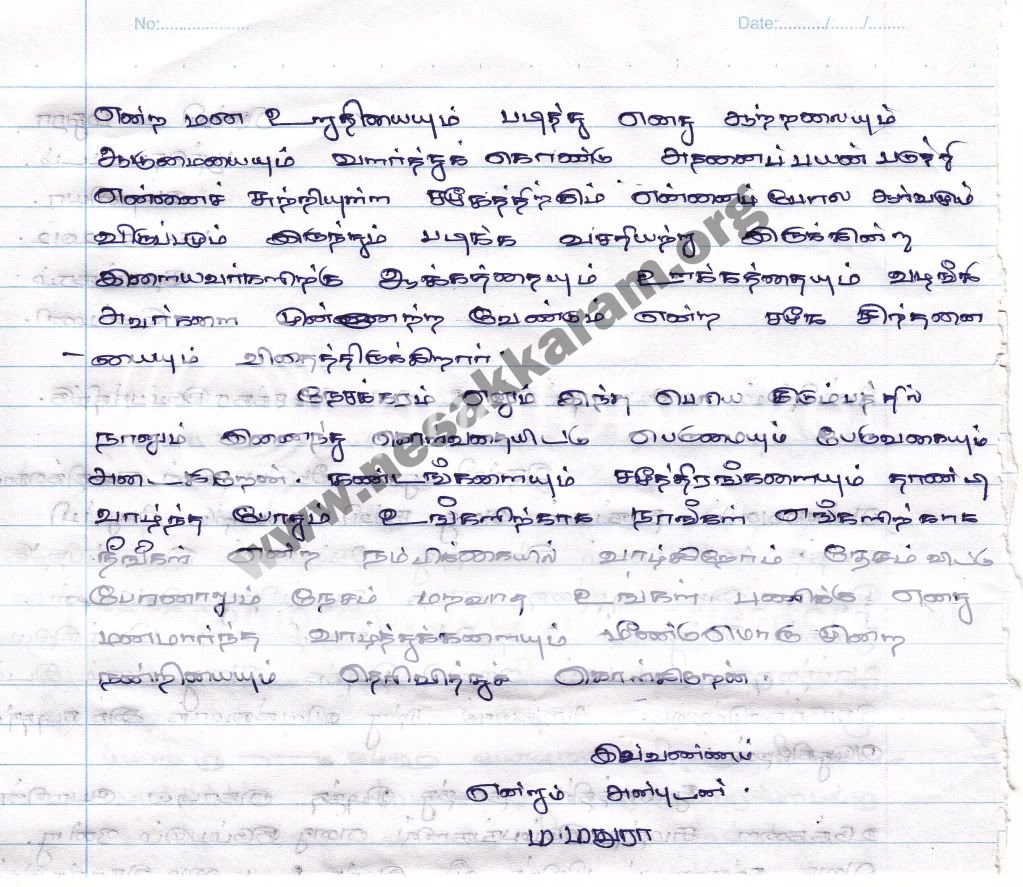 No:.................... Date:........../......./........
என்ற மன உறுதியையும் படித்து எனது ஆற்றலையும்
ஆளுமையையும் வளர்த்துக் கொண்டு அதனைப் பயன் படுத்தி
என்னைச் சுற்றியுள்ள சமூகத்திற்கும் என்னைப் போல ஆர்வமும்
விருப்பமும் இருந்தும் படிக்க வசதியற்று இருக்கின்ற
இளையவர்களிற்கு ஆக்கத்தையும் ஊக்கத்தையும் வழங்கி
அவர்களை முன்னேற்ற வேண்டும் என்ற சமூக சிந்தனை
-யையும் விதைத்திருக்கிறார்.
நேசக்கரம் எனும் இந்த பெரிய குடும்பத்தில்
நானும் இணைந்து கொள்வதையிட்டு பெருமையும் பேருவகையும்
அடைகிறேன். கண்டங்களையும் சமுத்திரங்களையும் தாண்டி
வாழ்ந்த போதும் உங்களிற்காக நாங்கள் எங்களிற்காக
நீங்கள் என்ற நம்பிக்கையில் வாழ்கிறோம். தேசம் விட்டு
போனாலும் நேசம் மறவாத உங்கள் பணிக்கு எனது
மனமார்ந்த வாழ்த்துக்களையும் மீண்டுமொரு முறை
நன்றியையும் தெரிவித்துக் கொள்கிறேன்.
இவ்வண்ணம்
என்றும் அன்புடன்.
ம.மதுரா
www.nesakkaram.org